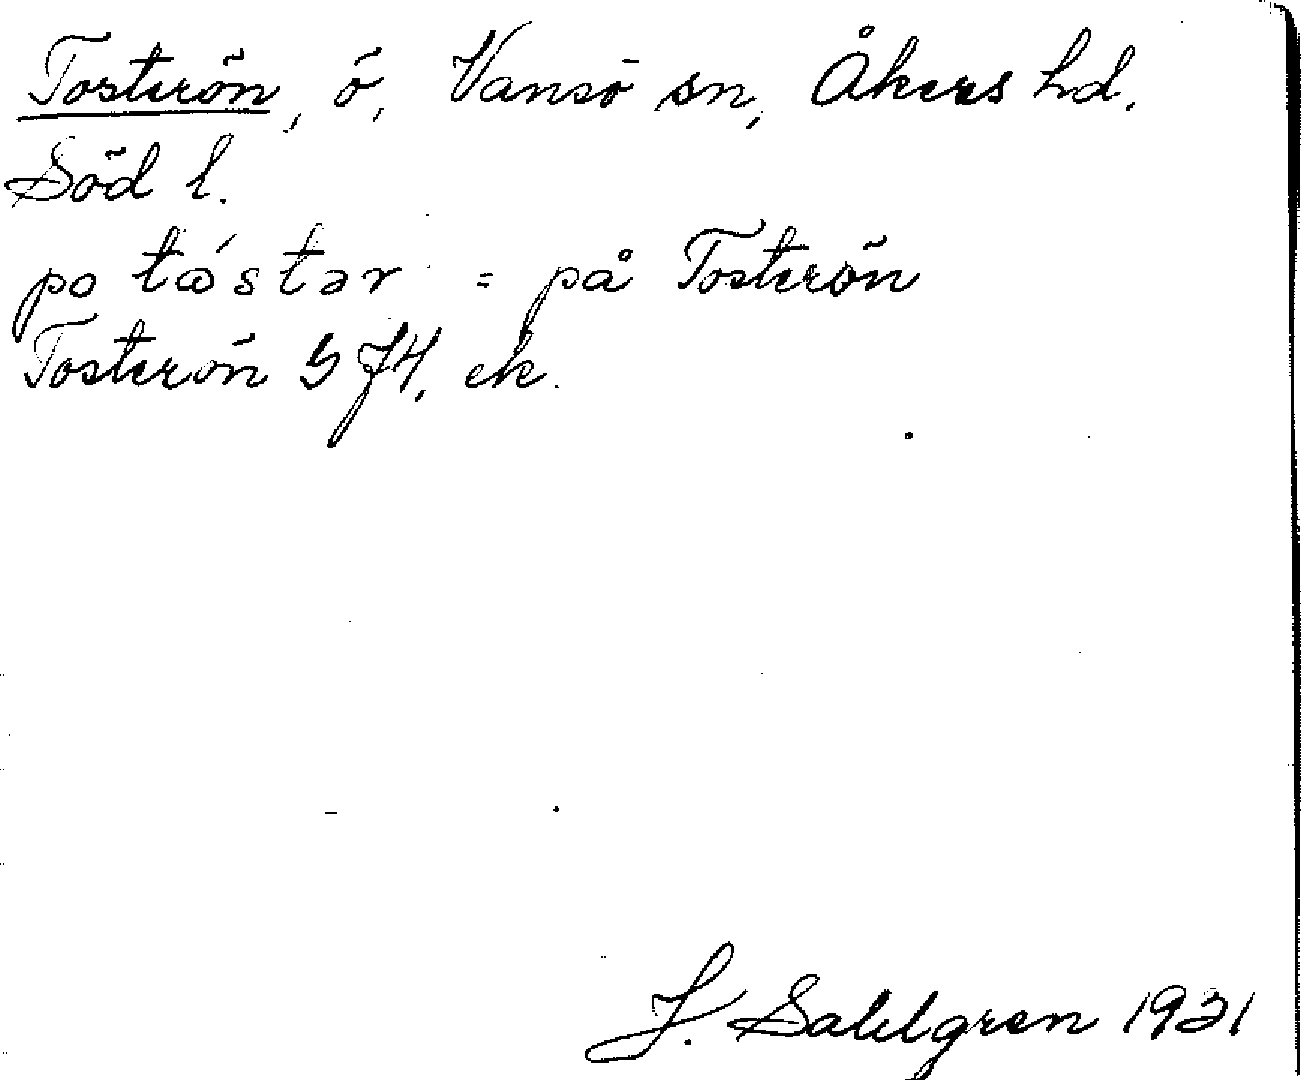 Tosterön, ö, Vansö sn, Åkers hd.
Söd l.
po tǿstər = på Tosterön
Tosterön 5 J4, ek.
J. Sahlgren 1931